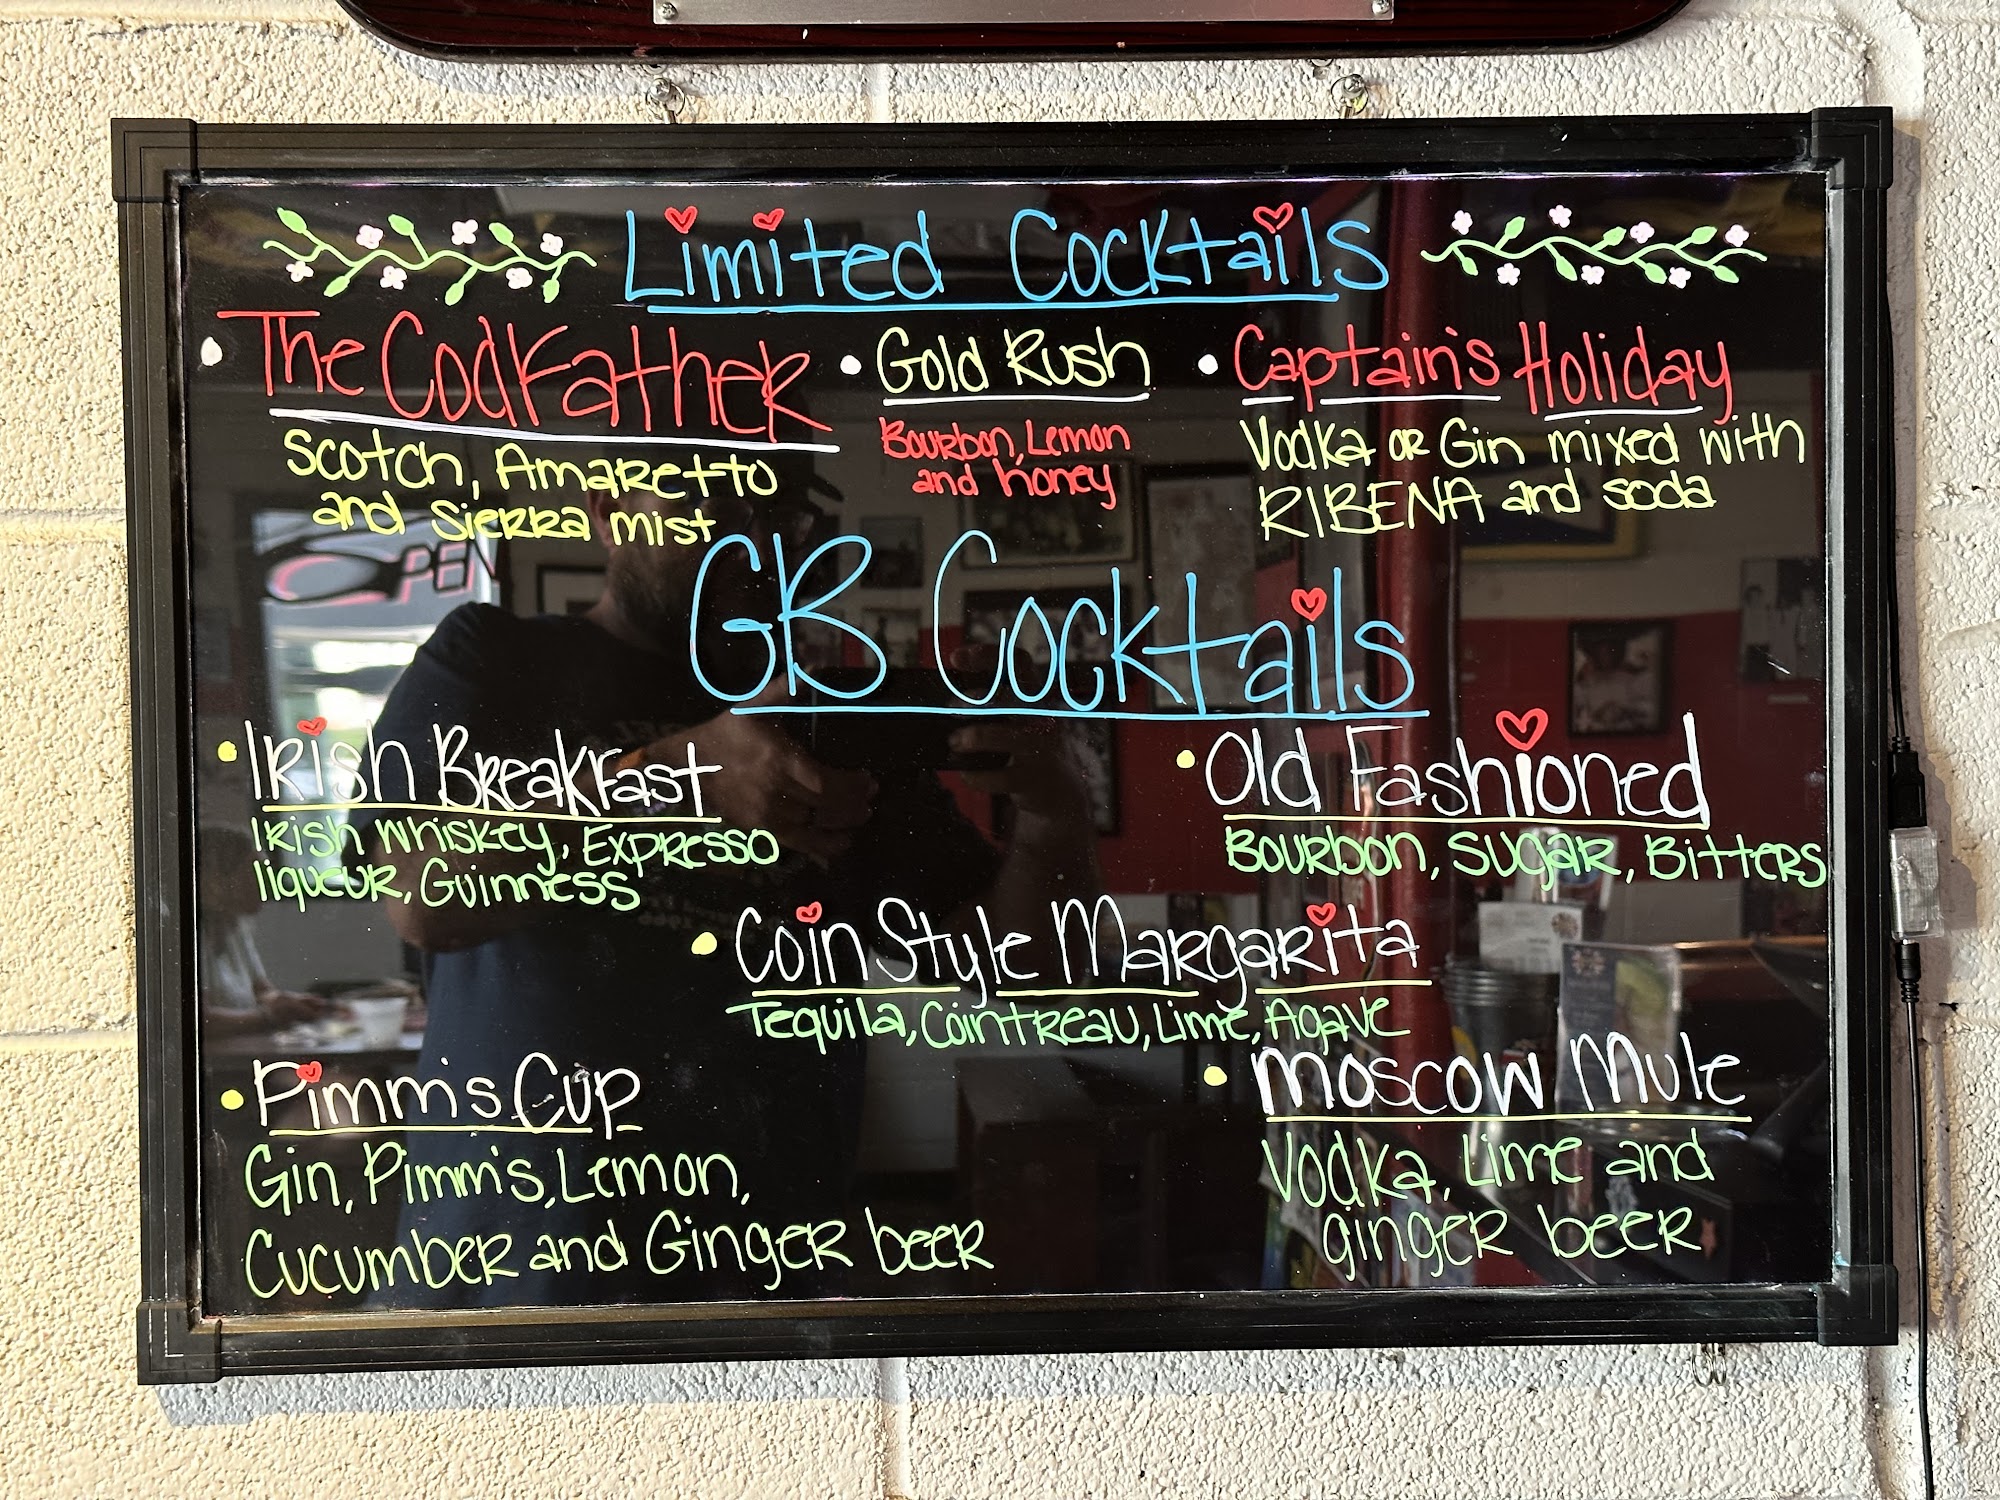 Limited Cocktails
• The CodFather
Scotch, Amaretto
and Sierra mist
• Gold Rush
Bourbon, Lemon
and honey
• Captain's Holiday
Vodka or Gin mixed with
RIBENA and soda
GB Cocktails
• Irish Breakfast
Irish whiskey, Expresso
liqueur, Guinness
• Old Fashioned
Bourbon, Sugar, Bitters
• Coin Style Margarita
Tequila, Cointreau, Lime, Agave
• Pimm's Cup
Gin, Pimm's, Lemon,
Cucumber and Ginger beer
• Moscow Mule
Vodka, Lime and
ginger beer
OPEN